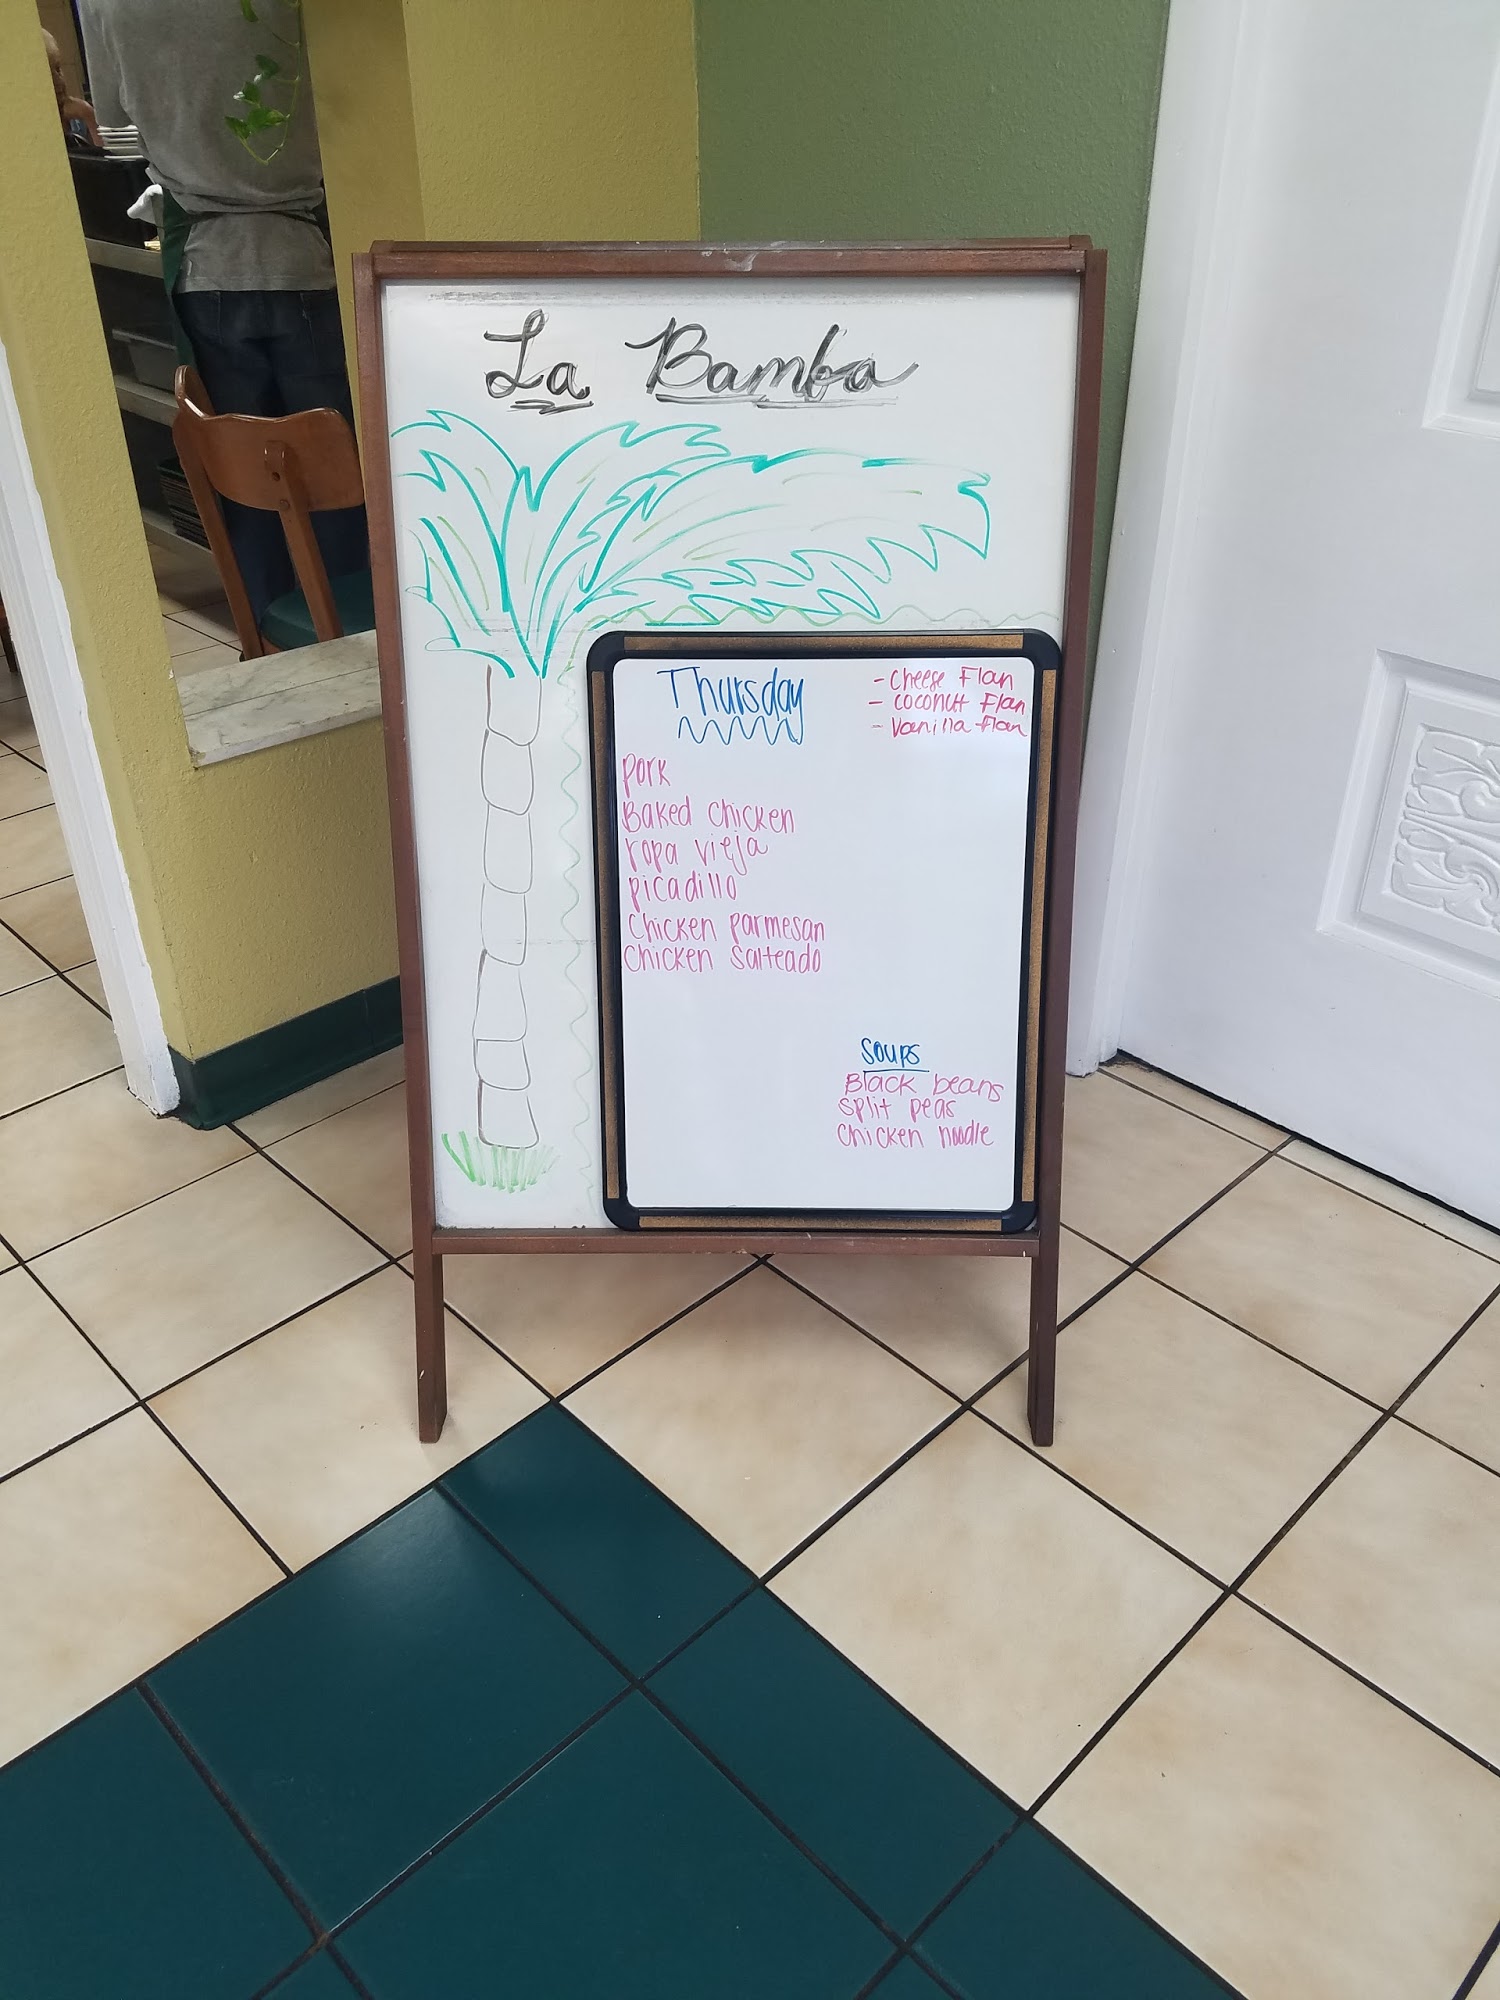 La Bamba
Thursday
- Cheese Flan
- Coconut Flan
- Vanilla flan
pork
Baked Chicken
ropa vieja
picadillo
Chicken parmesan
Chicken Salteado
Soups
Black beans
split peas
Chicken noodle